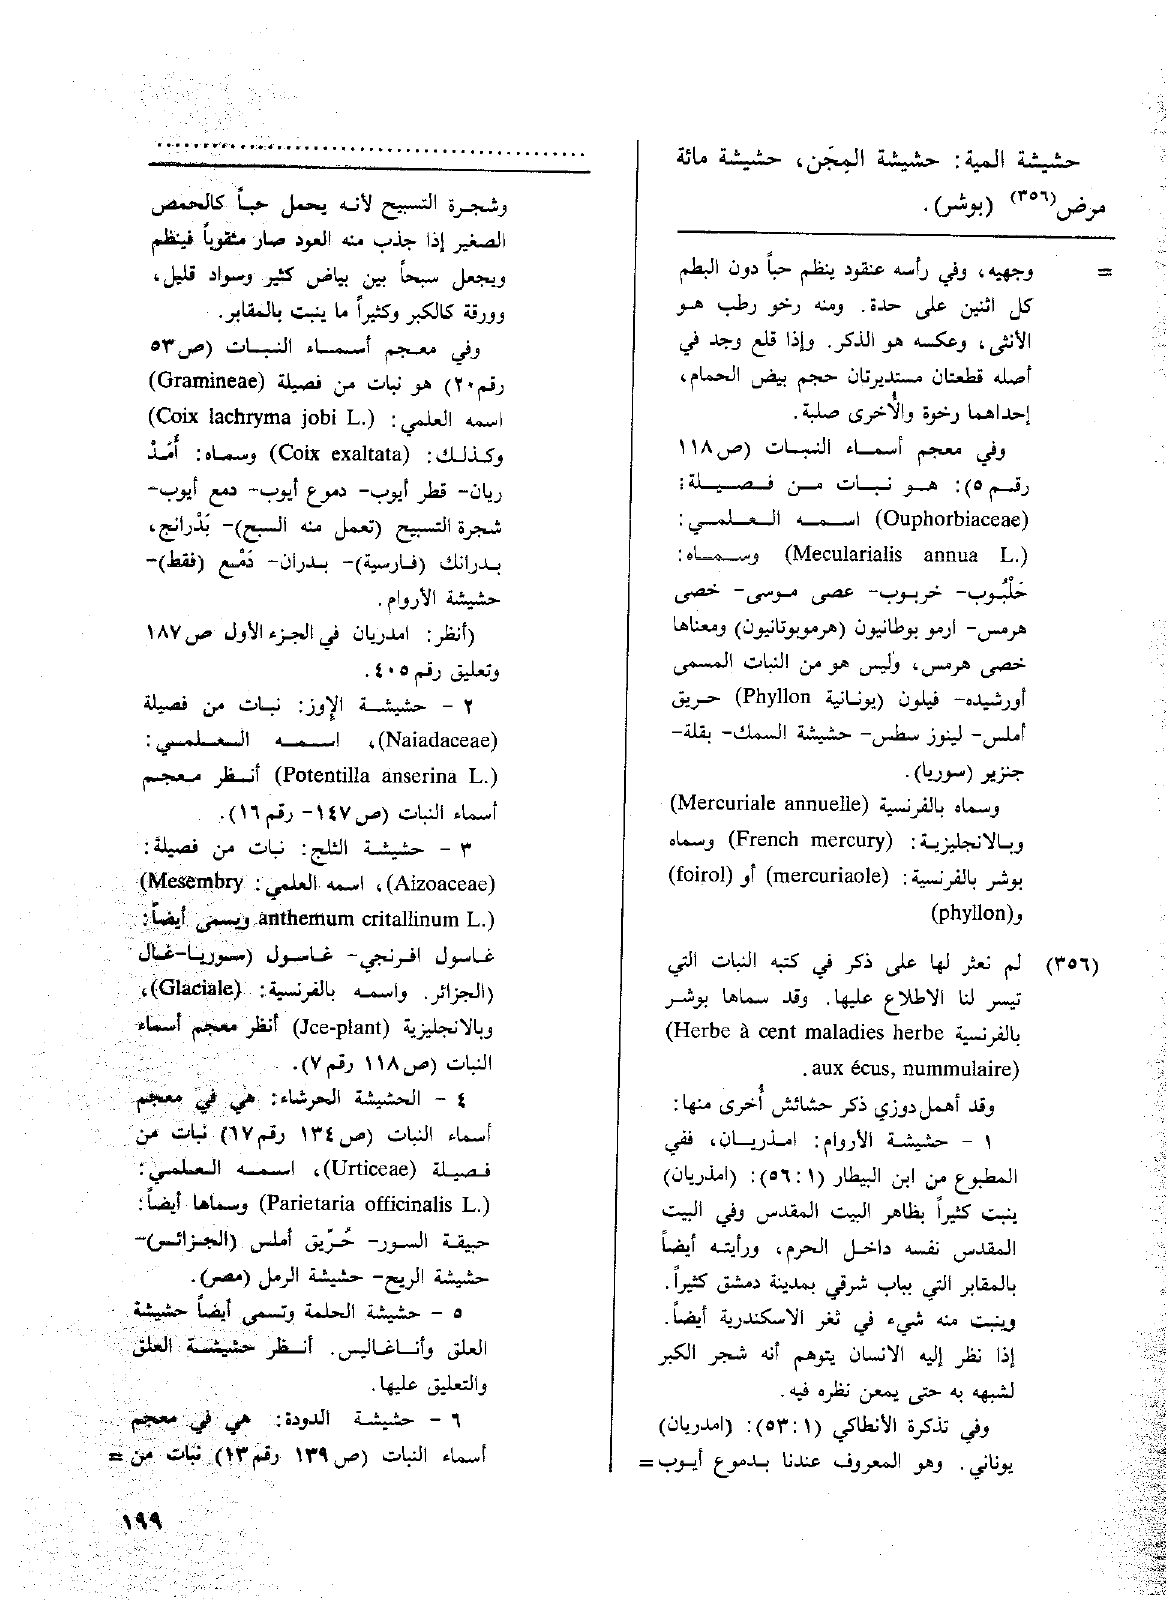 حشيشة المية: حشيشة المِجَن، حشيشة مائة
مرض(٣٥٦) (بوشر).
= وجهيه، وفي رأسه عنقود ينظم حباً دون البطم
كل اثنين على حدة. ومنه رخو رطب هو
الأنثى، وعكسه هو الذكر. وإذا قلع وجد في
أصله قطعتان مستديرتان حجم بيض الحمام،
إحداهما رخوة والأخرى صلبة.
وفي معجم أسماء النبات (ص ١١٨
رقم ٥): هو نبات من فصيلة:
(Ouphorbiaceae) اسمه العلمي:
(Mecularialis annua L.) وسماه:
حَلْبُوب- خربوب- عصى موسى- خصى
هرمس- ارمو بوطانيون (هرموبوتانيون) ومعناها
خصى هرمس، وليس هو من النبات المسمى
أورشيده- فيلون (يونانية Phyllon) حريق
أملس- لينوز سطس- حشيشة السمك- بقلة-
جنزير (سوريا).
وسماه بالفرنسية (Mercuriale annuelle)
وبالانجليزية: (French mercury) وسماه
بوشر بالفرنسية: (mercuriaole) أو (foirol)
و(phyllon)
(٣٥٦) لم نعثر لها على ذكر في كتبه النبات التي
تيسر لنا الاطلاع عليها. وقد سماها بوشر
بالفرنسية (Herbe à cent maladies herbe
aux écus, nummulaire).
وقد أهمل دوزي ذكر حشائش أُخرى منها:
١ - حشيشة الأروام: امذريان، ففي
المطبوع من ابن البيطار (١: ٥٦): (امذريان)
ينبت كثيراً بظاهر البيت المقدس وفي البيت
المقدس نفسه داخل الحرم، ورأيته أيضاً
بالمقابر التي بباب شرقي بمدينة دمشق كثيراً.
وينبت منه شيء في ثغر الاسكندرية أيضاً.
إذا نظر إليه الانسان يتوهم أنه شجر الكبر
لشبهه به حتى يمعن نظره فيه.
وفي تذكرة الأنطاكي (١: ٥٣): (امدريان)
يوناني. وهو المعروف عندنا بدموع أيوب =
وشجرة التسبيح لأنه يحمل حباً كالحمص
الصغير إذا جذب منه العود صار مثقوباً فينظم
ويجعل سبحاً بين بياض كثير وسواد قليل،
وورقة كالكبر وكثيراً ما ينبت بالمقابر.
وفي معجم أسماء النبات (ص ٥٣
رقم ٢٠) هو نبات من فصيلة (Gramineae)
اسمه العلمي: (Coix lachryma jobi L.)
وكذلك: (Coix exaltata) وسماه: أَمَذْ
ريان- قطر أيوب- دموع أيوب- دمع أيوب-
شجرة التسبيح (تعمل منه السبح)- بَدْرانج،
بدرانك (فارسية)- بدران- دَمْع (فقط)-
حشيشة الأروام.
(أنظر: امدريان في الجزء الأول ص ١٨٧
وتعليق رقم ٤٠٥.
٢ - حشيشة الإوز: نبات من فصيلة
(Naiadaceae)، اسمه العلمي:
(Potentilla anserina L.) أنظر معجم
أسماء النبات (ص ١٤٧- رقم ١٦).
٣ - حشيشة الثلج: نبات من فصيلة:
(Aizoaceae)، اسمه العلمي: (Mesembry
anthemum critallinum L.) ويسمى أيضاً:
غاسول افرنجي- غاسول (سوريا-غال
(الجزائر. واسمه بالفرنسية: (Glaciale)،
وبالانجليزية (Jce-plant) أنظر معجم أسماء
النبات (ص ١١٨ رقم ٧).
٤ - الحشيشة الحرشاء: هي في معجم
أسماء النبات (ص ١٣٤ رقم ٦٧) نبات من
فصيلة (Urticeae)، اسمه العلمي:
(Parietaria officinalis L.) وسماها أيضاً:
حبيقة السور- حُرّيق أملس (الجزائس)-
حشيشة الريح- حشيشة الرمل (مصر).
٥ - حشيشة الحلمة وتسمى أيضاً حشيشة
العلق وأناغاليس. أنظر حشيشة العلق
والتعليق عليها.
٦ - حشيشة الدودة: هي في معجم
أسماء النبات (ص ١٣٩ رقم ١٣) نبات من =
١٩٩